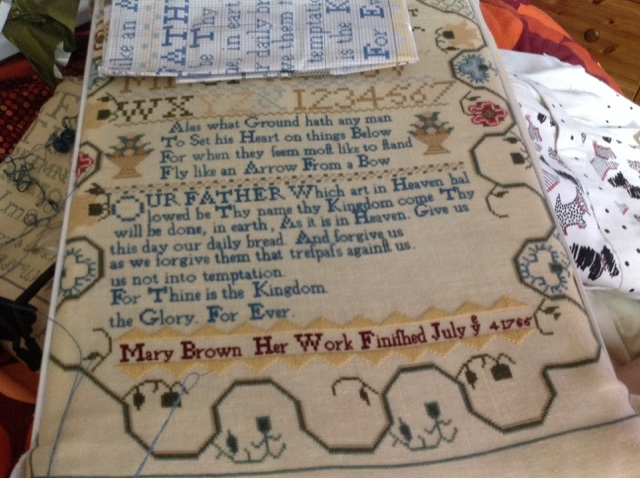 like an A
ATHE
Thy
in eart
daily br
them
temptat
is the K
For E
WXYZ & 1234567
Alas what Ground hath any man
To Set his Heart on things Below
For when they ſeem moſt like to ſtand
Fly like an Arrow From a Bow
OUR FATHER Which art in Heaven hal
lowed be Thy name thy Kingdom come Thy
will be done, in earth, As it is in Heaven. Give us
this day our daily bread. And forgive us
as we forgive them that treſpaſs againſt us.
us not into temptation
For Thine is the Kingdom.
the Glory. For Ever.
Mary Brown Her Work Finiſhed July ye 4 1766